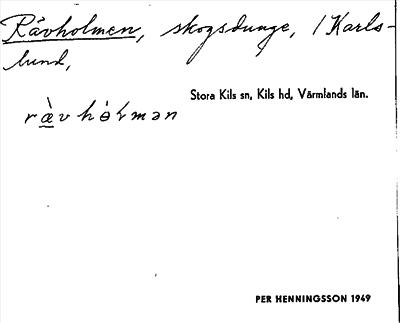 Rävholmen, skogsdunge, i Karls-
lund,
Stora Kils sn, Kils hd, Värmlands län.
ræ̀vhòłmən
PER HENNINGSSON 1949